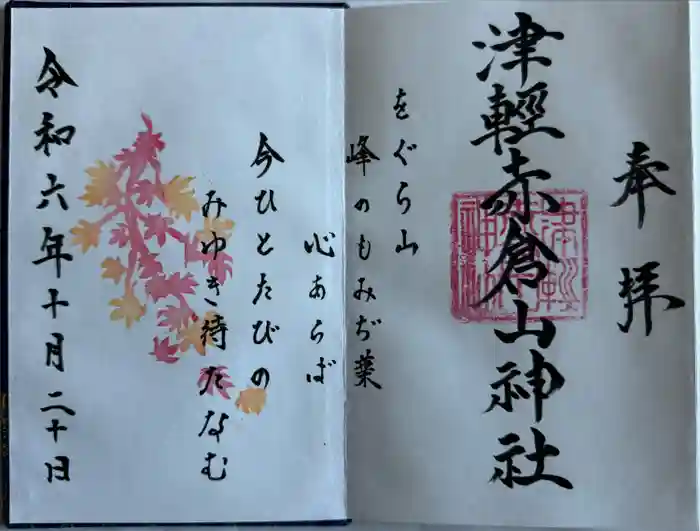 奉拝
津軽赤倉山神社
をぐら山
峰のもみぢ葉
心あらば
今ひとたびの
みゆき待たなむ
令和六年十月二十日